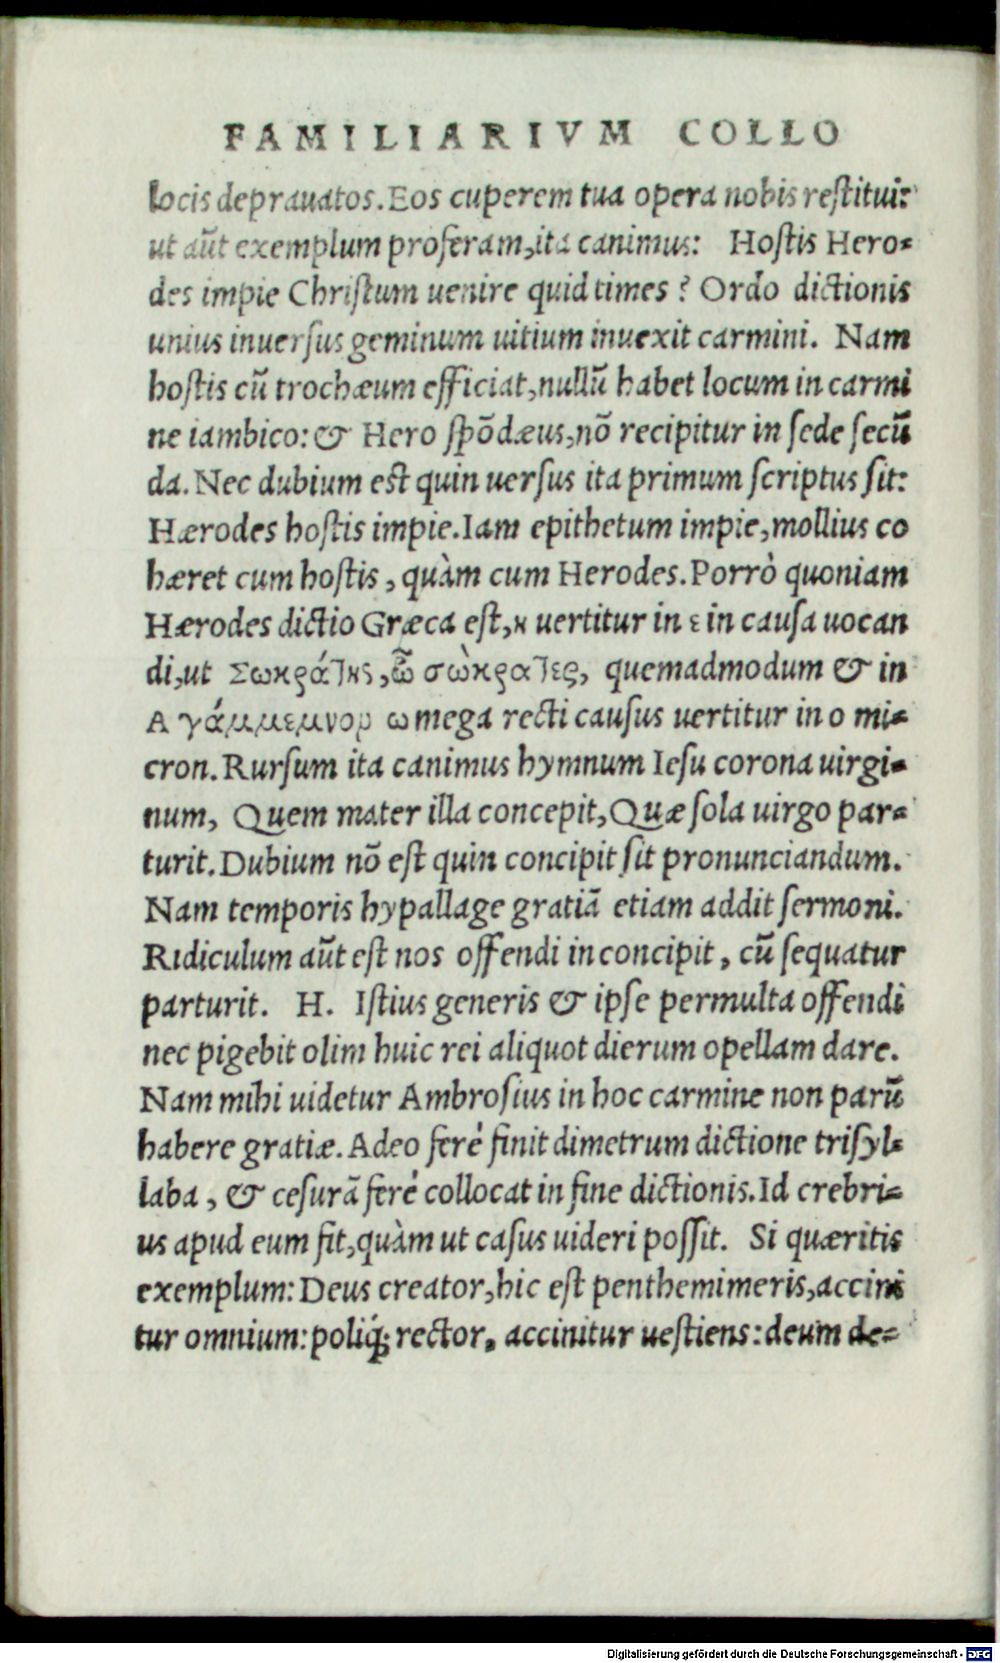 FAMILIARIVM COLLO
locis deprauatos. Eos cuperem tua opera nobis restitui:
ut aūt exemplum proferam, ita canimus: Hostis Hero-
des impie Christum uenire quid times? Ordo dictionis
unius inuersus geminum uitium inuexit carmini. Nam
hostis cū trochæum efficiat, nullū habet locum in carmi
ne iambico: & Hero spōdæus, nō recipitur in sede secū
da. Nec dubium est quin uersus ita primum scriptus sit:
Hærodes hostis impie. Iam epithetum impie, mollius co
hæret cum hostis, quàm cum Herodes. Porrò quoniam
Hærodes dictio Græca est, η uertitur in ε in causa uocan
di, ut Σωκράτης, ὦ σὼκρατες, quemadmodum & in
Αγάμμεμνορ ω mega recti causus uertitur in o mi-
cron. Rursum ita canimus hymnum Iesu corona uirgi-
num, Quem mater illa concepit, Quæ sola uirgo par-
turit. Dubium nō est quin concipit sit pronunciandum.
Nam temporis hypallage gratiā etiam addit sermoni.
Ridiculum aūt est nos offendi in concipit, cū sequatur
parturit. H. Istius generis & ipse permulta offendi
nec pigebit olim huic rei aliquot dierum opellam dare.
Nam mihi uidetur Ambrosius in hoc carmine non parū
habere gratiæ. Adeo ferè finit dimetrum dictione trisyl-
laba, & cesurā ferè collocat in fine dictionis. Id crebri-
us apud eum fit, quàm ut casus uideri possit. Si quæritis
exemplum: Deus creator, hic est penthemimeris, accini
tur omnium: poliq́; rector, accinitur uestiens: deum de-
Digitalisierung gefördert durch die Deutsche Forschungsgemeinschaft - DFG